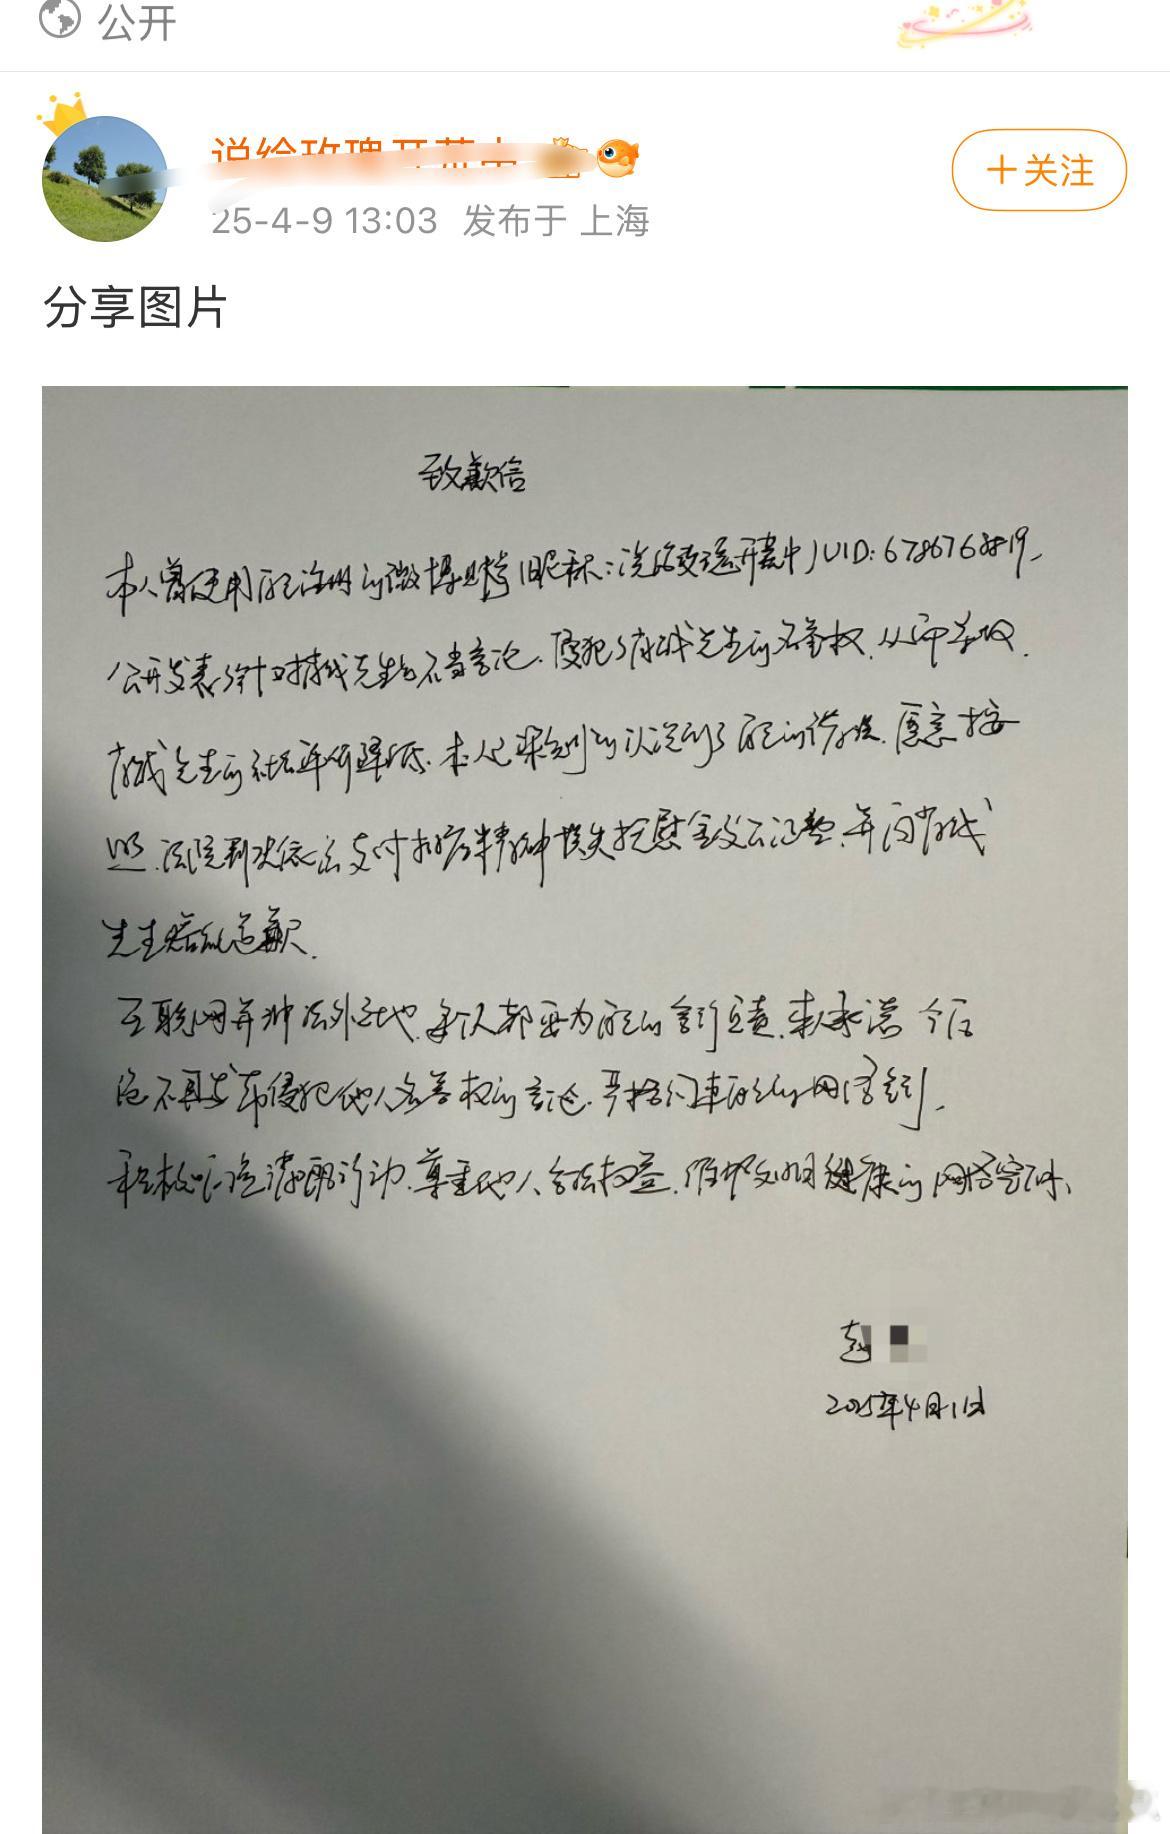 公开
25-4-9 13:03 发布于 上海
+关注
分享图片
致歉信
本人曾使用自己注册的微博账号(昵称:说给玫瑰开花中)UID:6786763819,
公开发表了针对先生的不当言论,侵犯了先生的名誉权,从而导致
先生的社会评价降低。本人已深刻的认识到了自己的错误,愿意按
照法院判决依法支付赔偿精神损失抚慰金及公证费,并向
先生赔礼道歉。
互联网并非法外之地,每个人都要为自己的言行负责,本人承诺今后
绝不再发布侵犯他人名誉权的言论,严格约束自己的网络言行,
积极
尊重他人合法权益,维护文明健康的网络空间。
赵
2025年4月1日